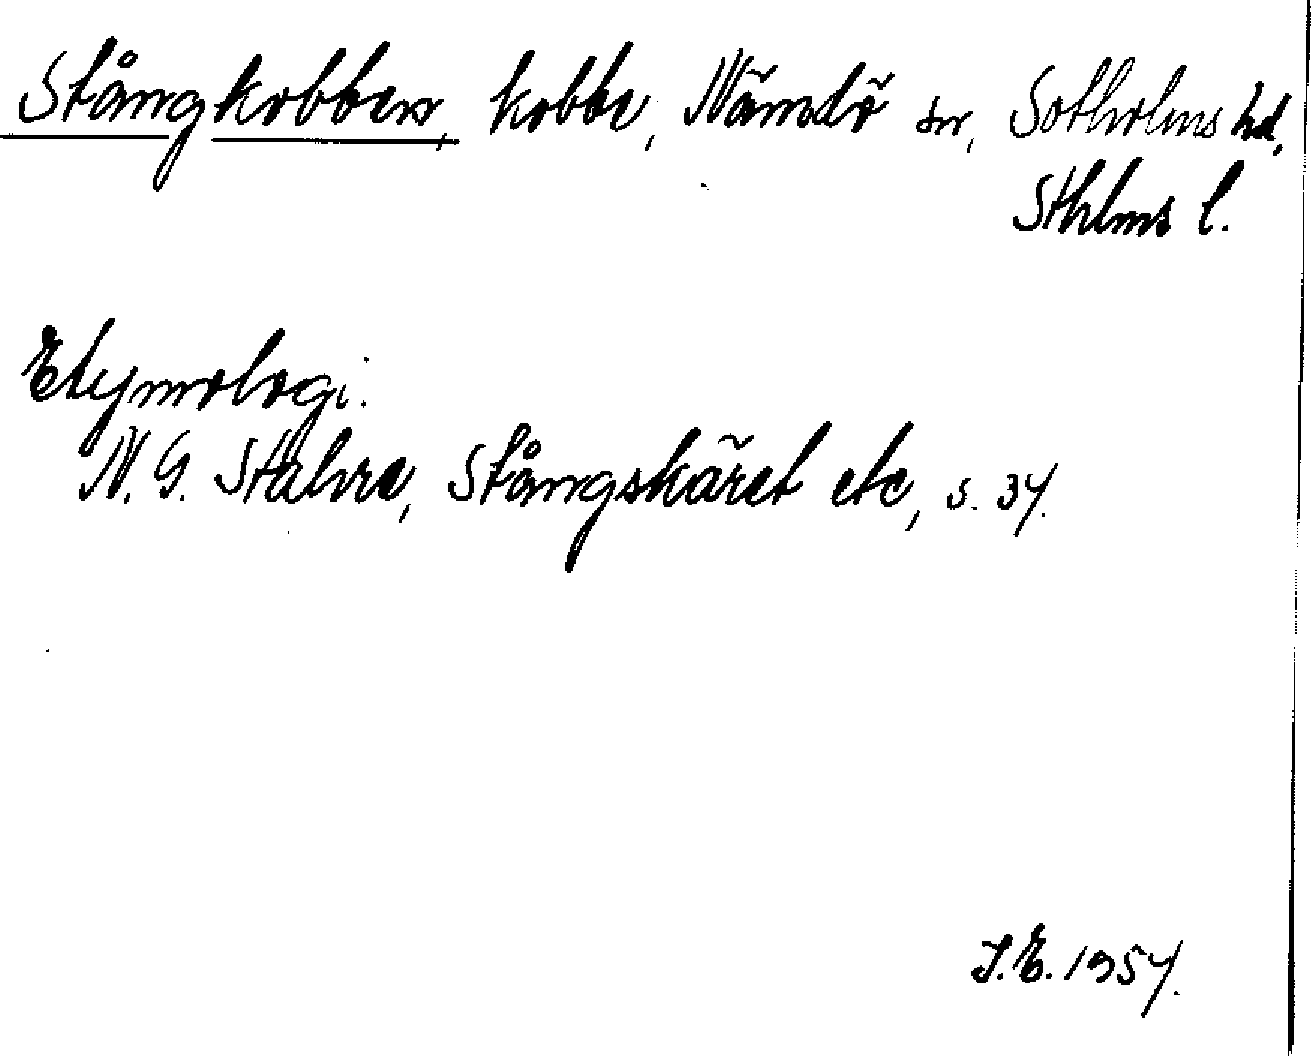 Stångkobben, kobbe, Nämdö sn, Sotholms hd,
Sthlms l.
Etymologi.
N. G. Stahre, Stångskäret etc, s. 37.
I.E. 1957.